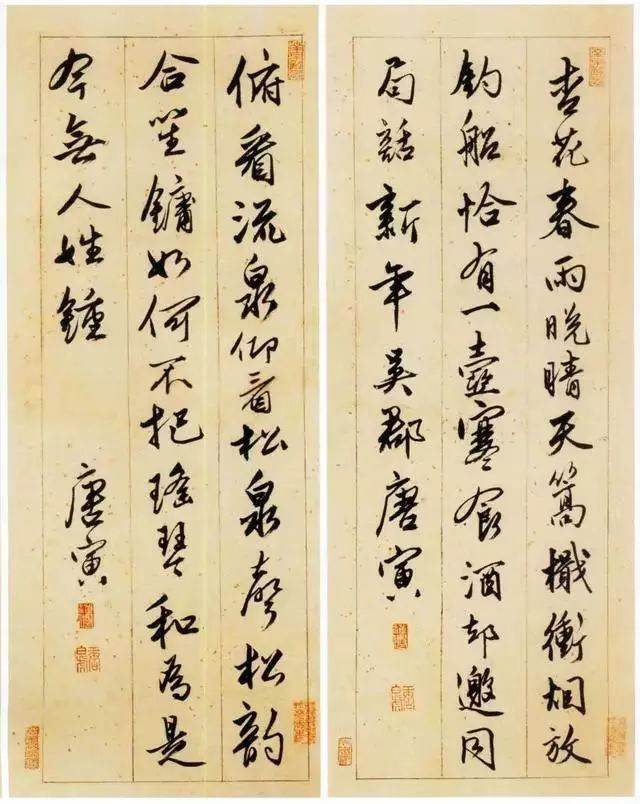 杏花春雨晚晴天篙檝衝烟放
釣船恰有一壺寒食酒却邀同
局話新年吳郡唐寅
俯看流泉仰看松泉聲松韵
合笙鏞如何不把瑤琴和為是
今無人姓鍾
唐寅